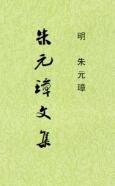 明 朱元璋
朱元璋文集